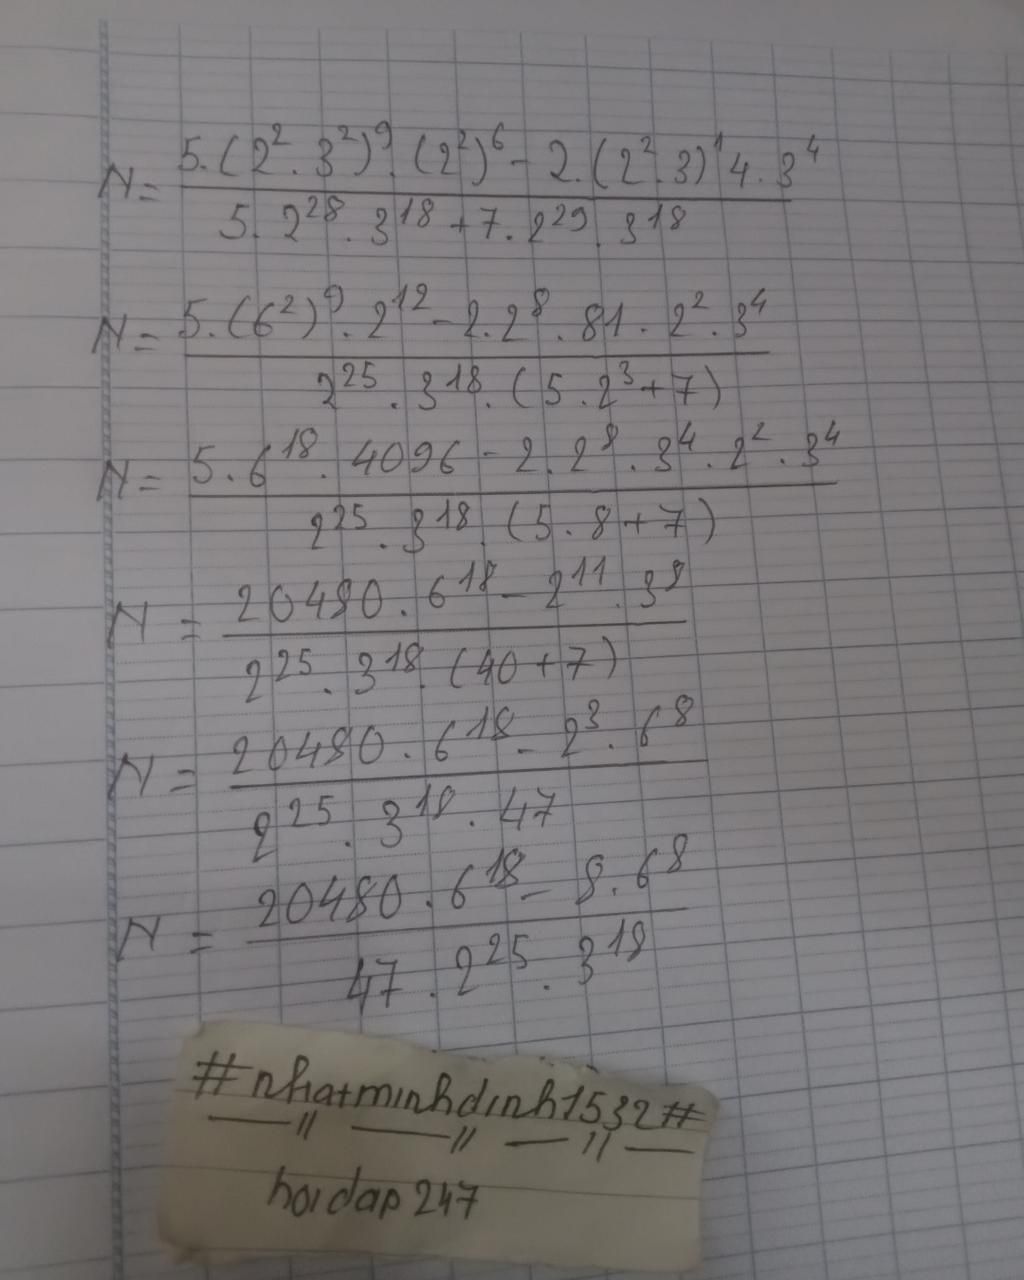 N = \frac{5.(2^2.3^2)^9.(2^2)^6 - 2.(2^2.3)^14.3^4}{5.2^{28}.3^{18} + 7.2^{29}.3^{18}}
N = \frac{5.(6^2)^9.2^{12} - 2.2^8.81.2^2.3^4}{2^{25}.3^{18}.(5.2^3 + 7)}
N = \frac{5.6^{18}.4096 - 2.2^8.3^4.2^2.3^4}{2^{25}.3^{18}.(5.8 + 7)}
N = \frac{20480.6^{18} - 2^{11}.3^8}{2^{25}.3^{18}.(40 + 7)}
N = \frac{20480.6^{18} - 2^3.6^8}{2^{25}.3^{18}.47}
N = \frac{20480.6^{18} - 8.6^8}{47.2^{25}.3^{18}}
#nhatminhdinh1532#
hoidap247